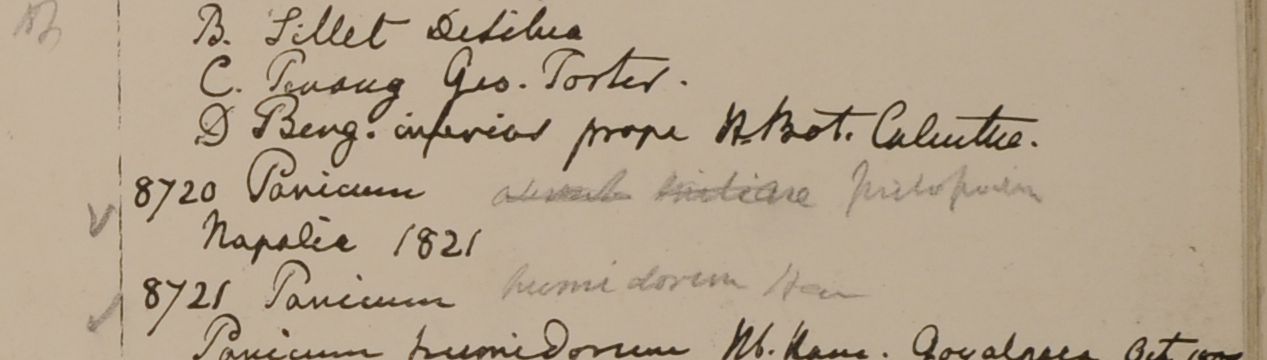 B. Sillet Desilva
C. Penang Geo. Porter.
D Beng. inferior prope H. Bot. Calcuttae.
8720 Panicum miliare psilopodium
Napalia 1821
8721 Panicum humidorum Ham
Panicum humidorum Hb. Ham. Goyalpara Oct